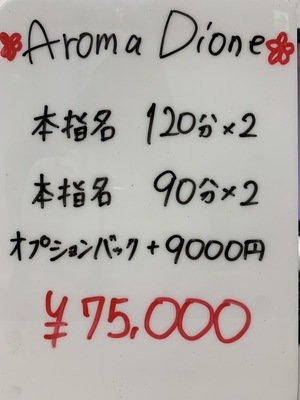 Aroma Dione
本指名 120分×2
本指名 90分×2
オプションバック+9000円
¥75,000